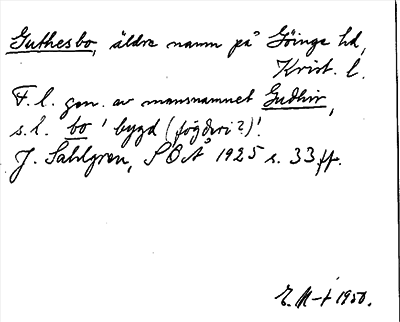 Guthesbo, äldre namn på Göinge hd,
Krist. l.
F. l. gen. av mansnamnet Gudhir,
s. l. bo 'bygd (fögderi?)'.
J. Sahlgren, SOÅ 1925 s. 33 ff.
E. M-t 1950.